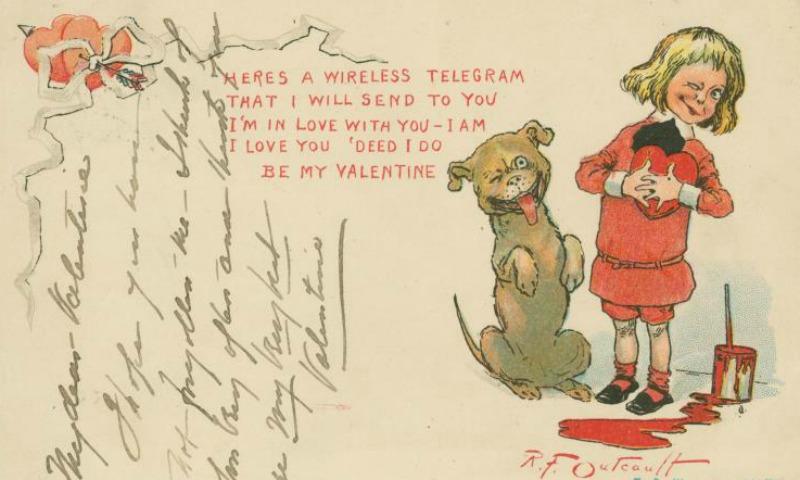 HERES A WIRELESS TELEGRAM
THAT I WILL SEND TO YOU
I'M IN LOVE WITH YOU - I AM
I LOVE YOU 'DEED I DO
BE MY VALENTINE
My dear Valentine
I hope you have
not forgotten me - I think of
you very often and
my
Valentine
R.F. Outcault